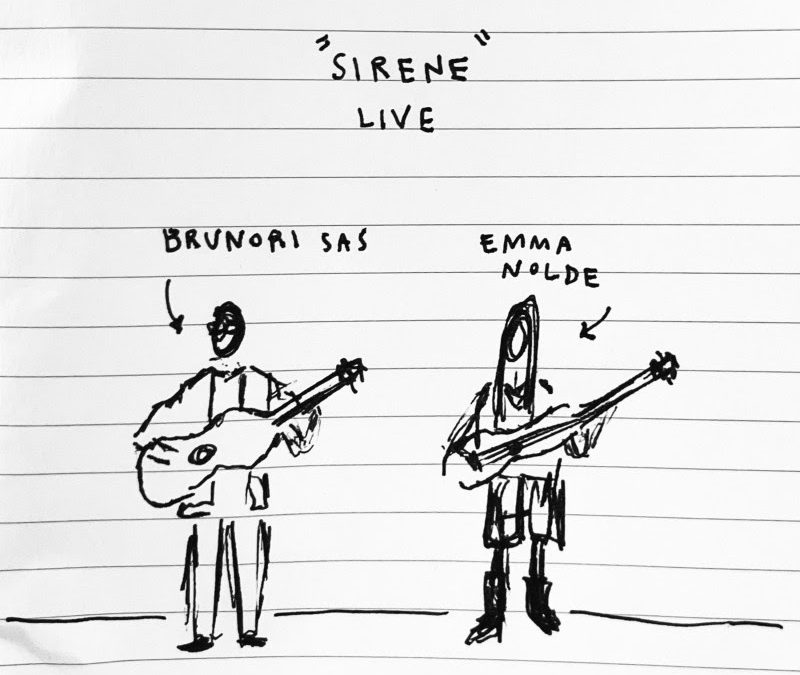 "SIRENE"
LIVE
BRUNORI SAS
EMMA
NOLDE